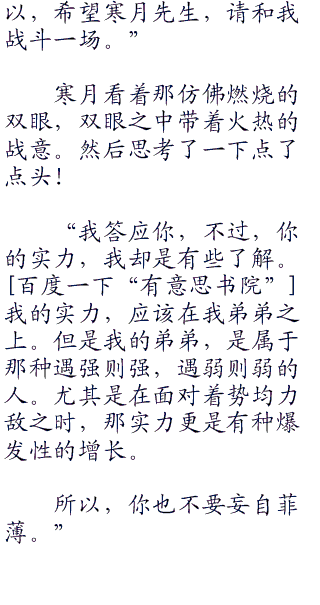 以，希望寒月先生，请和我
战斗一场。”
寒月看着那仿佛燃烧的
双眼，双眼之中带着火热的
战意。然后思考了一下点了
点头！
“我答应你，不过，你
的实力，我却是有些了解。
[百度一下“有意思书院”]
我的实力，应该在我弟弟之
上。但是我的弟弟，是属于
那种遇强则强，遇弱则弱的
人。尤其是在面对着势均力
敌之时，那实力更是有种爆
发性的增长。
所以，你也不要妄自菲
薄。”